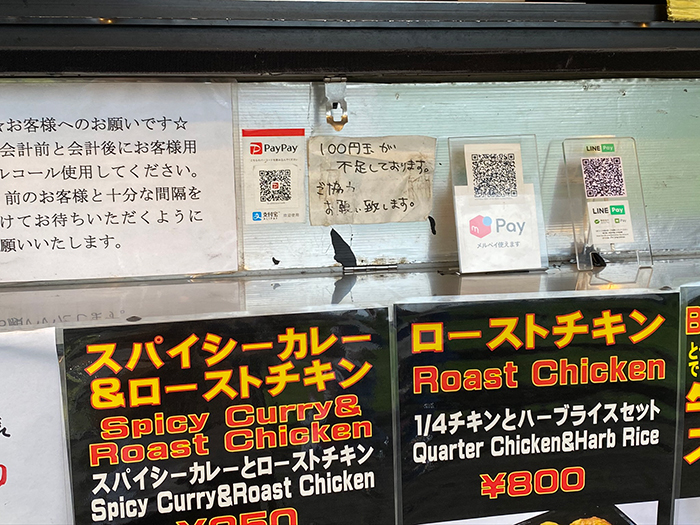 ☆お客様へのお願いです☆
会計前と会計後にお客様用
ルコール使用してください。
前のお客様と十分な間隔を
けてお待ちいただくように
願いいたします。
PayPay
支付宝
100円玉が
不足しております。
ご協力
お願い致します。
Pay
メルペイ使えます
LINE Pay
LINE Pay
スパイシーカレー
&ローストチキン
Spicy Curry&
Roast Chicken
スパイシーカレーとローストチキン
Spicy Curry&Roast Chicken
ローストチキン
Roast Chicken
1/4チキンとハーブライスセット
Quarter Chicken&Harb Rice
¥800